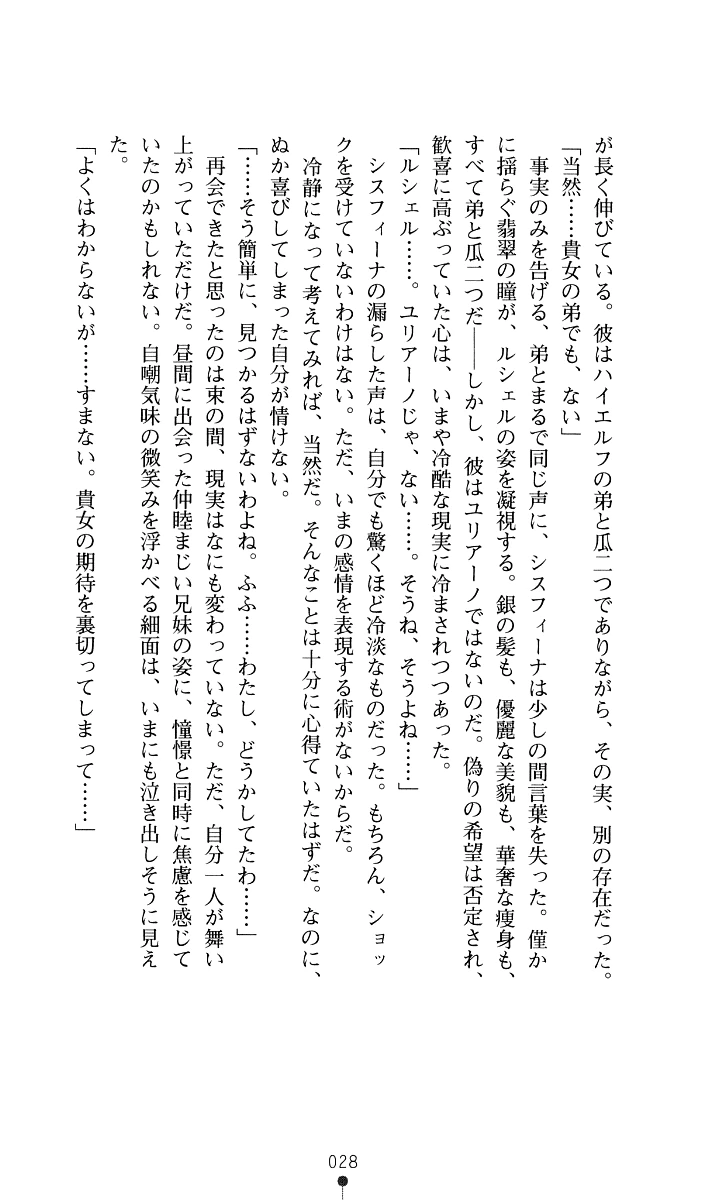 が長く伸びている。彼はハイエルフの弟と瓜二つでありながら、その実、別の存在だった。
「当然……貴女の弟でも、ない」
　事実のみを告げる、弟とまるで同じ声に、シスフィーナは少しの間言葉を失った。僅か
に揺らぐ翡翠の瞳が、ルシェルの姿を凝視する。銀の髪も、優麗な美貌も、華奢な痩身も、
すべて弟と瓜二つだ――しかし、彼はユリアーノではないのだ。偽りの希望は否定され、
歓喜に高ぶっていた心は、いまや冷酷な現実に冷まされつつあった。
「ルシェル……。ユリアーノじゃ、ない……。そうね、そうよね……」
　シスフィーナの漏らした声は、自分でも驚くほど冷淡なものだった。もちろん、ショッ
クを受けていないわけはない。ただ、いまの感情を表現する術がないからだ。
　冷静になって考えてみれば、当然だ。そんなことは十分に心得ていたはずだ。なのに、
ぬか喜びしてしまった自分が情けない。
「……そう簡単に、見つかるはずないわよね。ふふ……わたし、どうかしてたわ……」
　再会できたと思ったのは束の間、現実はなにも変わっていない。ただ、自分一人が舞い
上がっていただけだ。昼間に出会った仲睦まじい兄妹の姿に、憧憬と同時に焦慮を感じて
いたのかもしれない。自嘲気味の微笑みを浮かべる細面は、いまにも泣き出しそうに見え
た。
「よくはわからないが……すまない。貴女の期待を裏切ってしまって……」
028